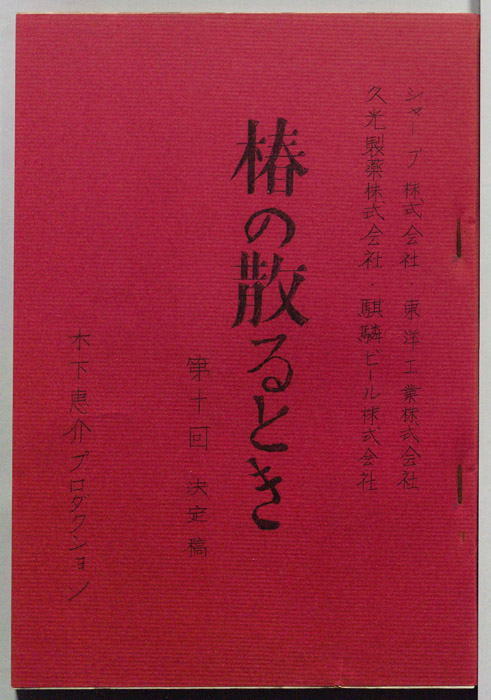 シャープ株式会社・東洋工業株式会社
久光製薬株式会社 麒麟ビール株式会社
椿の散るとき
第十回 決定稿
木下恵介プロダクション